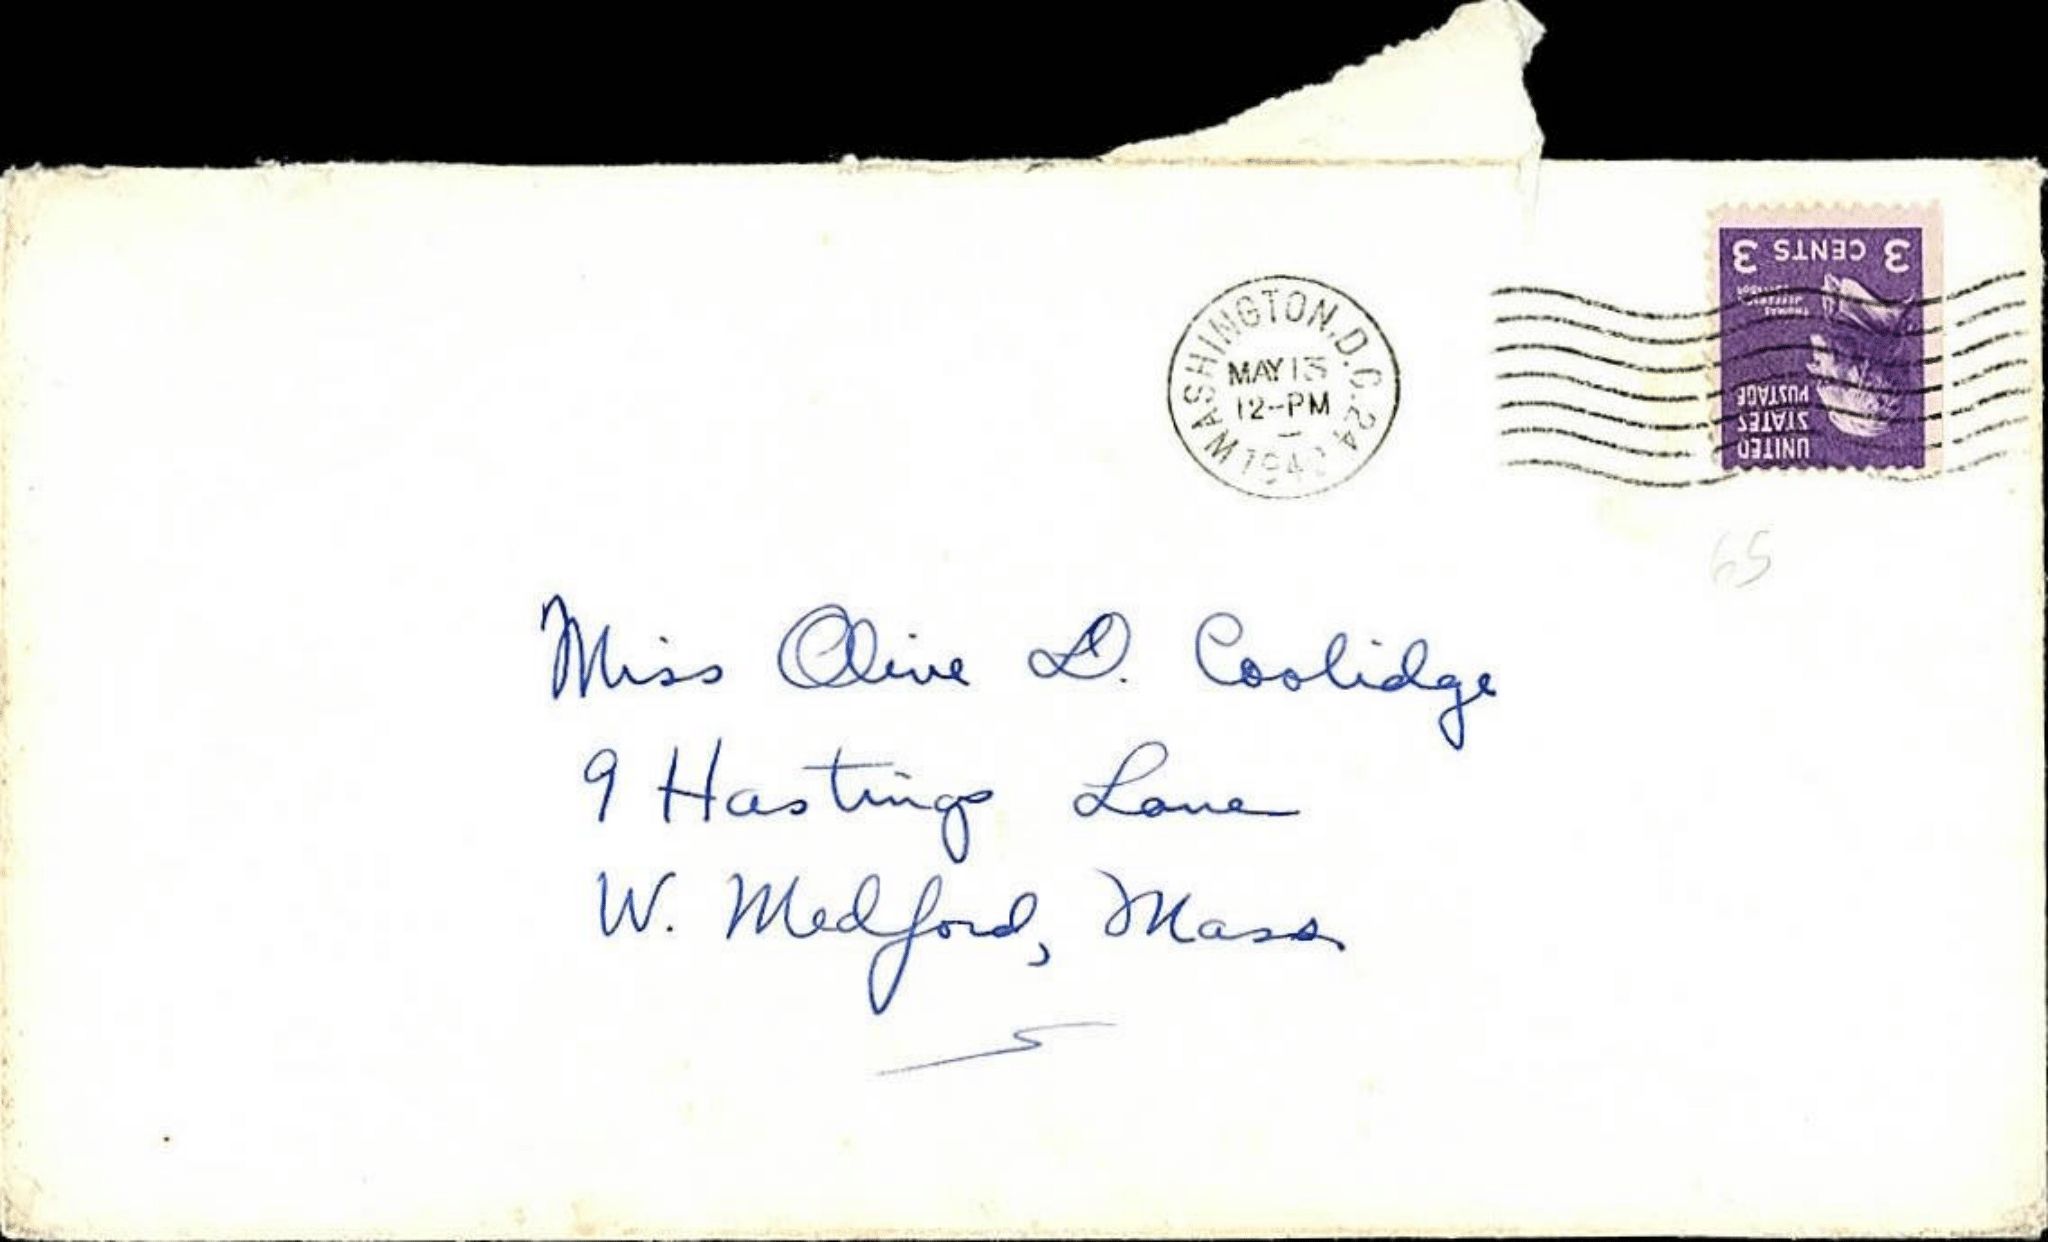 WASHINGTON, D.C. 24
MAY 13
12-PM
3 CENTS 3
THOMAS
JEFFERSON
UNITED
STATES
POSTAGE
65
Miss Olive D. Coolidge
9 Hastings Lane
W. Medford, Mass